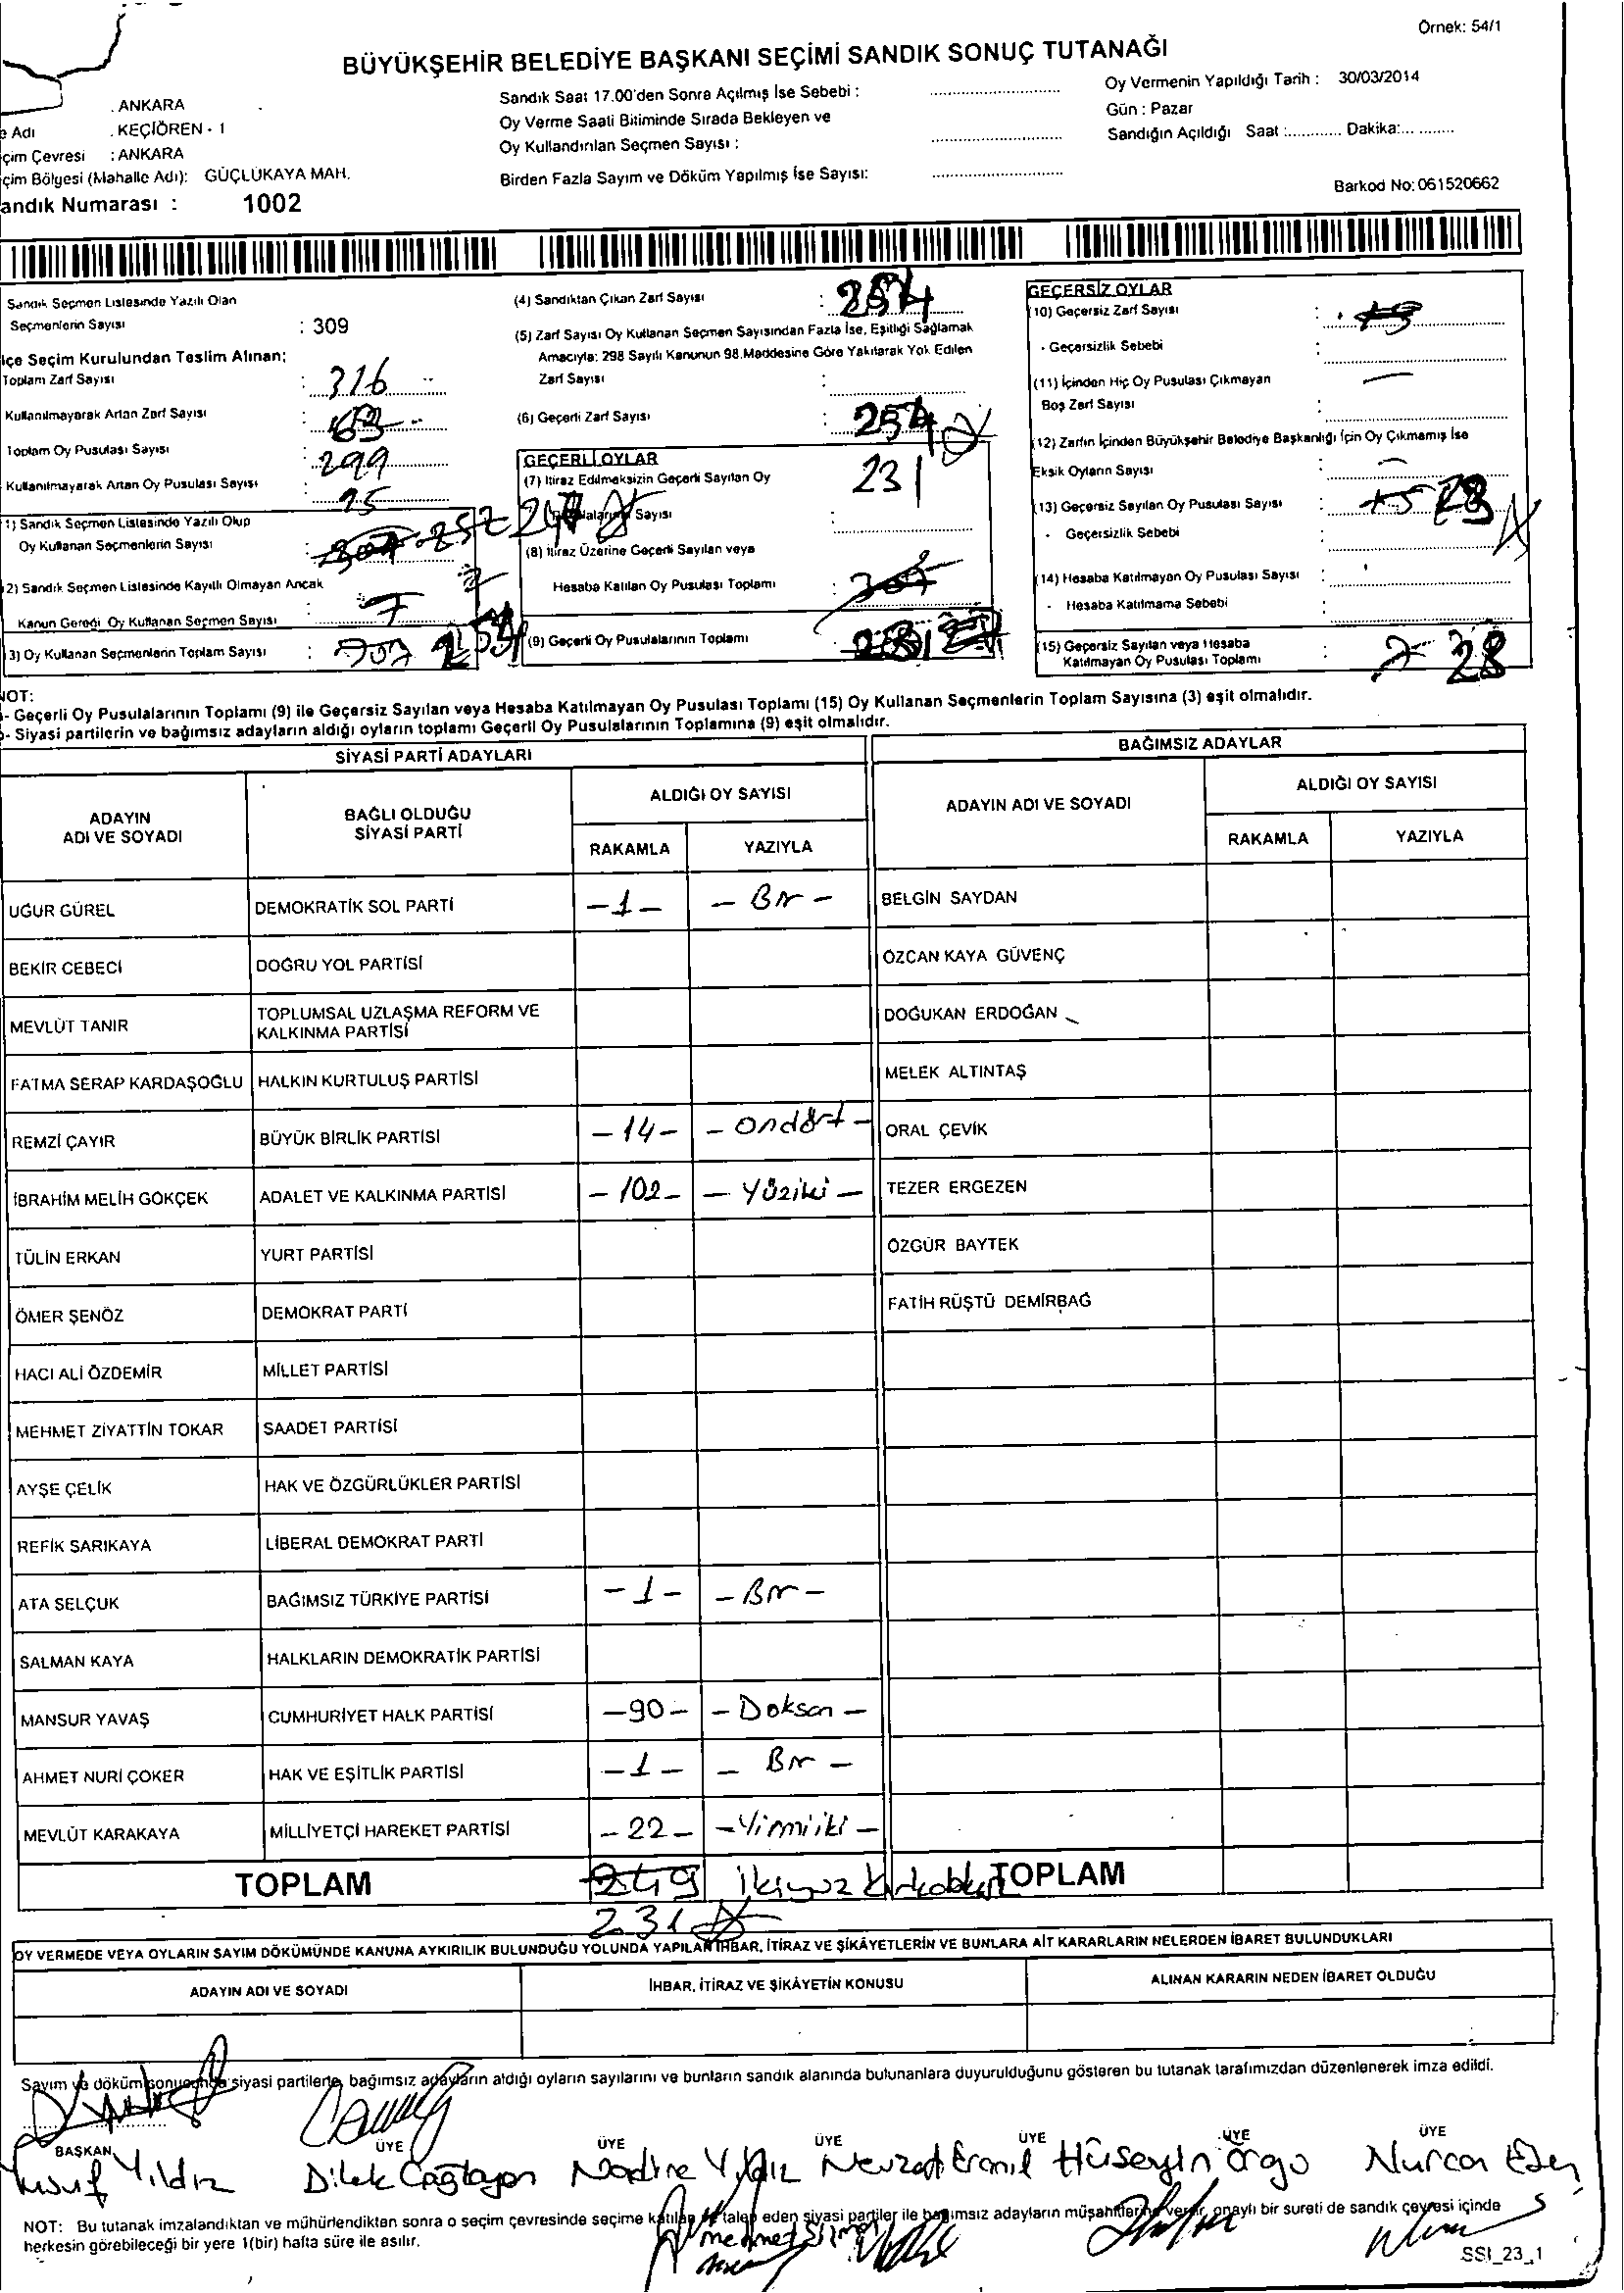 Örnek: 54/1
BÜYÜKŞEHİR BELEDİYE BAŞKANI SEÇİMİ SANDIK SONUÇ TUTANAĞI
: ANKARA
Adı : KEÇİÖREN - 1
çim Çevresi : ANKARA
çim Bölgesi (Mahalle Adı): GÜÇLÜKAYA MAH.
andık Numarası : 1002
Sandık Saat 17.00'den Sonra Açılmış İse Sebebi :
Oy Verme Saati Bitiminde Sırada Bekleyen ve
Oy Kullandırılan Seçmen Sayısı :
Birden Fazla Sayım ve Döküm Yapılmış İse Sayısı:
Oy Vermenin Yapıldığı Tarih : 30/03/2014
Gün : Pazar
Sandığın Açıldığı Saat :............ Dakika:...........
Barkod No: 061520662
Sandık Seçmen Listesinde Yazılı Olan
Seçmenlerin Sayısı : 309
lçe Seçim Kurulundan Teslim Alınan;
Toplam Zarf Sayısı : 316
Kullanılmayarak Artan Zarf Sayısı : 63
Toplam Oy Pusulası Sayısı : 299
Kullanılmayarak Artan Oy Pusulası Sayısı :
1) Sandık Seçmen Listesinde Yazılı Olup
Oy Kullanan Seçmenlerin Sayısı:
2) Sandık Seçmen Listesinde Kayıtlı Olmayan Ancak
Kanun Gereği Oy Kullanan Seçmen Sayısı : 7
3) Oy Kullanan Seçmenlerin Toplam Sayısı :
(4) Sandıktan Çıkan Zarf Sayısı : 254
(5) Zarf Sayısı Oy Kullanan Seçmen Sayısından Fazla İse, Eşitliği Sağlamak
Amacıyla; 298 Sayılı Kanunun 98.Maddesine Göre Yakılarak Yok Edilen
Zarf Sayısı :
(6) Geçerli Zarf Sayısı : 254
GEÇERLİ OYLAR
(7) İtiraz Edilmeksizin Geçerli Sayılan Oy 231
Pusulalarının Sayısı :
(8) İtiraz Üzerine Geçerli Sayılan veya
Hesaba Katılan Oy Pusulası Toplamı :
(9) Geçerli Oy Pusulalarının Toplamı :
GEÇERSİZ OYLAR
(10) Geçersiz Zarf Sayısı :
- Geçersizlik Sebebi :
(11) İçinden Hiç Oy Pusulası Çıkmayan
Boş Zarf Sayısı :
(12) Zarfın İçinden Büyükşehir Belediye Başkanlığı İçin Oy Çıkmamış İse
Eksik Oyların Sayısı :
(13) Geçersiz Sayılan Oy Pusulası Sayısı :
- Geçersizlik Sebebi :
(14) Hesaba Katılmayan Oy Pusulası Sayısı :
- Hesaba Katılmama Sebebi :
(15) Geçersiz Sayılan veya Hesaba
Katılmayan Oy Pusulası Toplamı : 28
NOT:
- Geçerli Oy Pusulalarının Toplamı (9) ile Geçersiz Sayılan veya Hesaba Katılmayan Oy Pusulası Toplamı (15) Oy Kullanan Seçmenlerin Toplam Sayısına (3) eşit olmalıdır.
- Siyasi partilerin ve bağımsız adayların aldığı oyların toplamı Geçerli Oy Pusulalarının Toplamına (9) eşit olmalıdır.
SİYASİ PARTİ ADAYLARI
BAĞIMSIZ ADAYLAR
ADAYIN ADI VE SOYADI
BAĞLI OLDUĞU SİYASİ PARTİ
ALDIĞI OY SAYISI
RAKAMLA YAZIYLA
ADAYIN ADI VE SOYADI
ALDIĞI OY SAYISI
RAKAMLA YAZIYLA
UĞUR GÜREL DEMOKRATİK SOL PARTİ -1- - Bir - BELGİN SAYDAN
BEKİR CEBECİ DOĞRU YOL PARTİSİ ÖZCAN KAYA GÜVENÇ
MEVLÜT TANIR TOPLUMSAL UZLAŞMA REFORM VE KALKINMA PARTİSİ DOĞUKAN ERDOĞAN
FATMA SERAP KARDAŞOĞLU HALKIN KURTULUŞ PARTİSİ MELEK ALTINTAŞ
REMZİ ÇAYIR BÜYÜK BİRLİK PARTİSİ -14- - ondört - ORAL ÇEVİK
İBRAHİM MELİH GÖKÇEK ADALET VE KALKINMA PARTİSİ -102- - Yüziki - TEZER ERGEZEN
TÜLİN ERKAN YURT PARTİSİ ÖZGÜR BAYTEK
ÖMER ŞENÖZ DEMOKRAT PARTİ FATİH RÜŞTÜ DEMİRBAĞ
HACI ALİ ÖZDEMİR MİLLET PARTİSİ
MEHMET ZİYATTİN TOKAR SAADET PARTİSİ
AYŞE ÇELİK HAK VE ÖZGÜRLÜKLER PARTİSİ
REFİK SARIKAYA LİBERAL DEMOKRAT PARTİ
ATA SELÇUK BAĞIMSIZ TÜRKİYE PARTİSİ -1- - Bir -
SALMAN KAYA HALKLARIN DEMOKRATİK PARTİSİ
MANSUR YAVAŞ CUMHURİYET HALK PARTİSİ -90- - Doksan -
AHMET NURİ ÇOKER HAK VE EŞİTLİK PARTİSİ -1- - Bir -
MEVLÜT KARAKAYA MİLLİYETÇİ HAREKET PARTİSİ -22- - Yirmiiki -
TOPLAM 249 ikiyüz TOPLAM
231
OY VERMEDE VEYA OYLARIN SAYIM DÖKÜMÜNDE KANUNA AYKIRILIK BULUNDUĞU YOLUNDA YAPILAN İHBAR, İTİRAZ VE ŞİKÂYETLERİN VE BUNLARA AİT KARARLARIN NELERDEN İBARET BULUNDUKLARI
ADAYIN ADI VE SOYADI İHBAR, İTİRAZ VE ŞİKÂYETİN KONUSU ALINAN KARARIN NEDEN İBARET OLDUĞU
Sayım ve döküm sonucunda siyasi partilerle, bağımsız adayların aldığı oyların sayılarını ve bunların sandık alanında bulunanlara duyurulduğunu gösteren bu tutanak tarafımızdan düzenlenerek imza edildi.
BAŞKAN ÜYE ÜYE ÜYE ÜYE ÜYE ÜYE
Yusuf Yıldız Dilek Çağlayan Nadire Yıldız Nevzat Hüseyin Nurcan
NOT: Bu tutanak imzalandıktan ve mühürlendikten sonra o seçim çevresinde seçime katılan ve talep eden siyasi partiler ile bağımsız adayların müşahitlerine verilir, onaylı bir sureti de sandık çevresi içinde
herkesin görebileceği bir yere 1(bir) hafta süre ile asılır.
mehmet
SSI_23_1